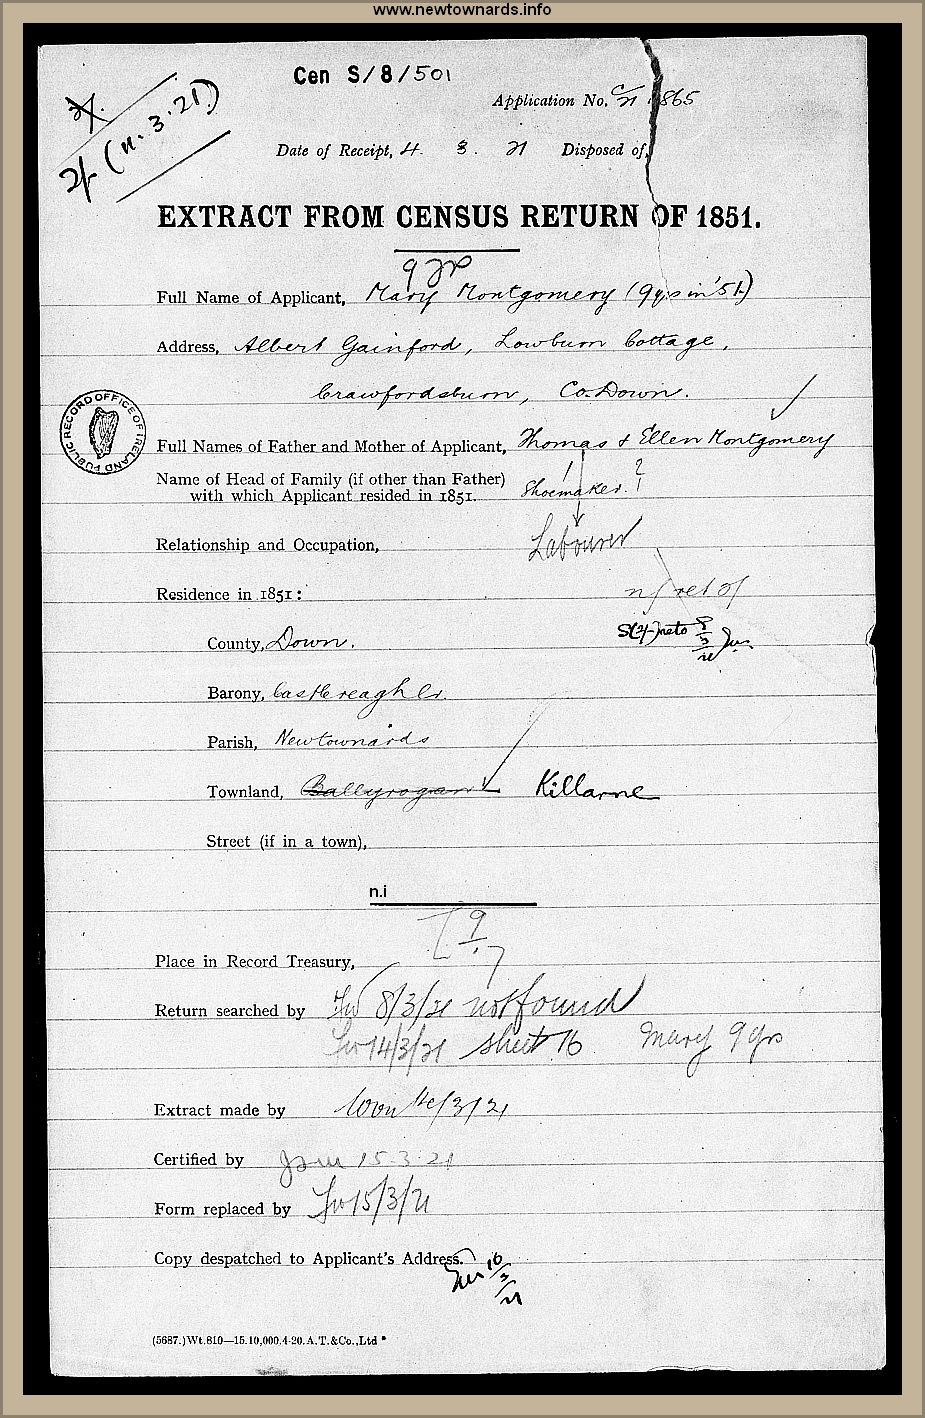 www.newtownards.info
Cen S/8/501
Application No. 1865
2/- (11.3.21)
Date of Receipt, 4 . 3 . 21 Disposed of,
EXTRACT FROM CENSUS RETURN OF 1851.
9 yrs
Full Name of Applicant, Mary Montgomery (9 yrs in '51)
Address, Albert Gainford, Lowburn Cottage,
Crawfordsburn, Co. Down.
PUBLIC RECORD OFFICE OF IRELAND
Full Names of Father and Mother of Applicant, Thomas & Ellen Montgomery
Name of Head of Family (if other than Father)
with which Applicant resided in 1851. Shoemaker. ?
Relationship and Occupation, Labourer
Residence in 1851:
County, Down.
Barony, Castlereagh Lr.
Parish, Newtownards
Townland, Ballyrogan Killarne
Street (if in a town),
n.i
Place in Record Treasury,
Return searched by 8/3/21 not found
14/3/21 sheet 16 Mary 9 yrs
Extract made by /3/21
Certified by 15.3.21
Form replaced by 15/3/21
Copy despatched to Applicant's Address. 16/3/21
(5687.)Wt.810—15.10,000.4-20.A.T.&Co.,Ltd